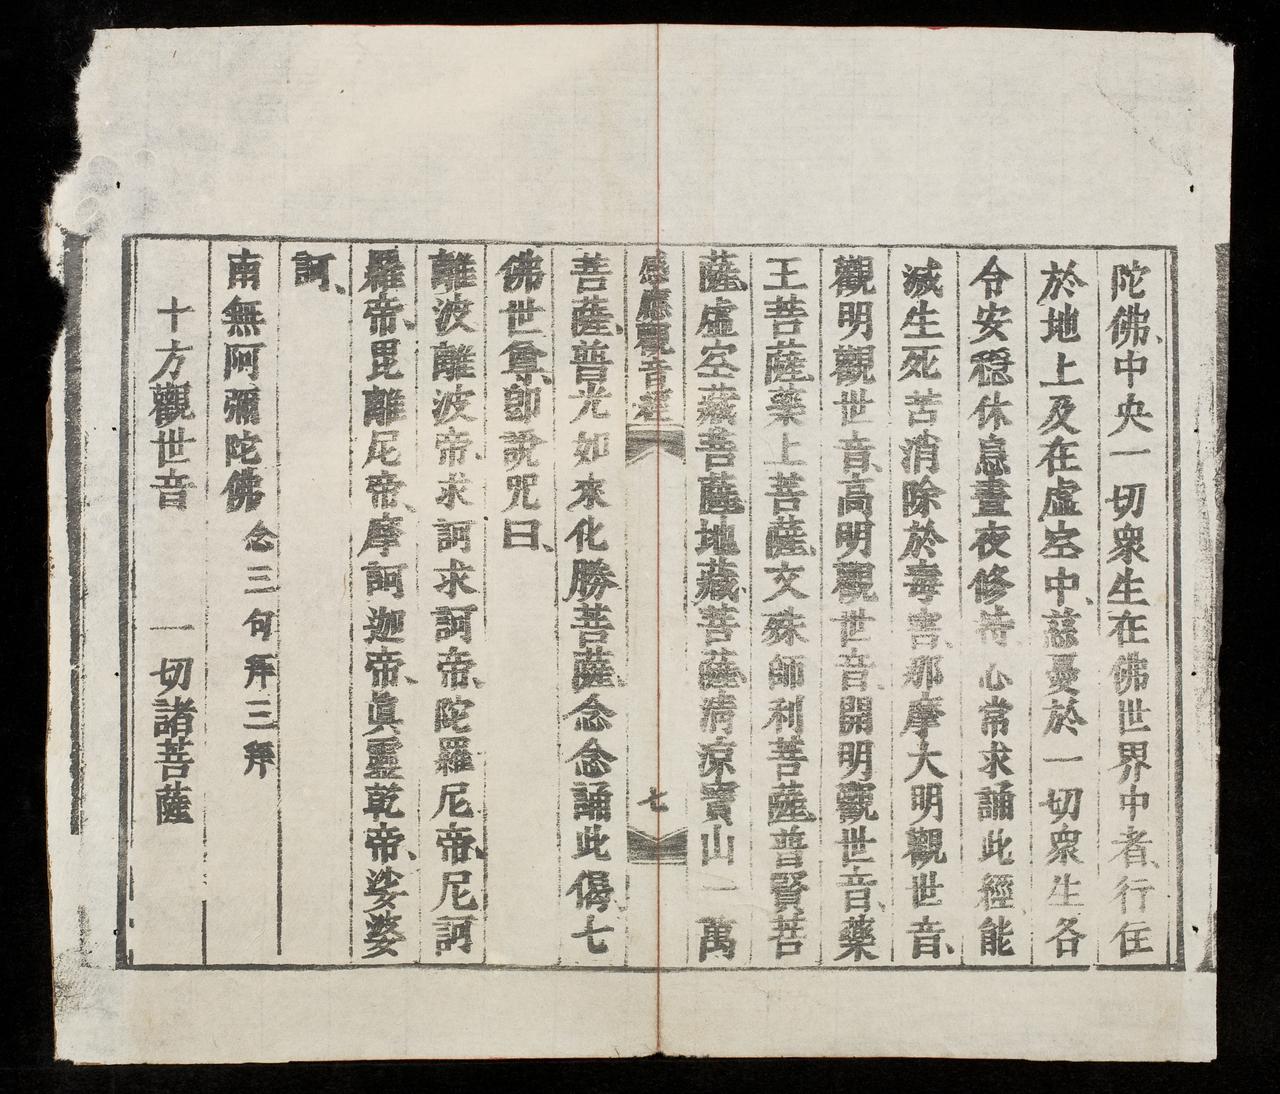 陀佛、中央一切衆生在佛世界中者、行住
於地上及在虛空中、慈憂於一切衆生各
令安穩休息晝夜修持心常求誦此經、能
滅生死苦消除於毒害、那摩大明觀世音、
觀明觀世音、高明觀世音、開明觀世音、藥
王菩薩、藥上菩薩、文殊師利菩薩、普賢菩
薩、虛空藏菩薩、地藏菩薩、清涼寶山一萬
感應觀音經
七
菩薩、普光如來化勝菩薩、念念誦此偈、七
佛世尊、卽說咒曰、
離波離波帝、求訶求訶帝、陀羅尼帝、尼訶
羅帝、毘離尼帝、摩訶迦帝、眞靈乾帝、娑婆
訶、
南無阿彌陀佛 念三句拜三拜
十方觀世音 一切諸菩薩